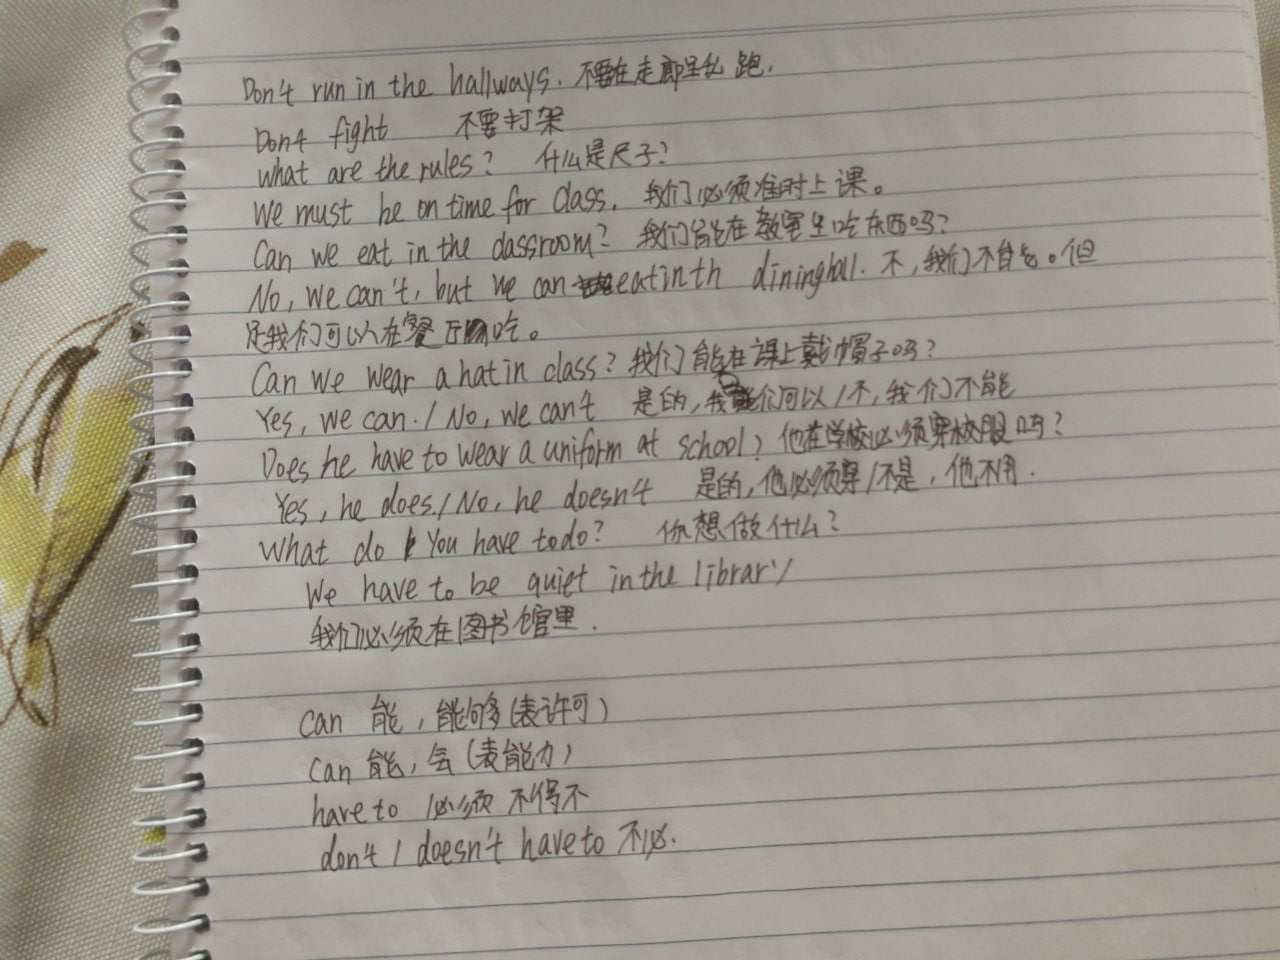 Don't run in the hallways. 不要在走廊里乱跑.
Don't fight 不要打架
What are the rules? 什么是尺子?
We must be on time for class. 我们必须准时上课。
Can we eat in the classroom? 我们能在教室里吃东西吗?
No, we can't, but we can eat in th dining hall. 不,我们不能。但
是我们可以在餐厅吃。
Can we wear a hat in class? 我们能在课上戴帽子吗?
Yes, we can. / No, we can't 是的,我们可以/不,我们不能
Does he have to wear a uniform at school? 他在学校必须穿校服吗?
Yes, he does. / No, he doesn't 是的,他必须穿/不是,他不用.
What do you have to do? 你想做什么?
We have to be quiet in the library
我们必须在图书馆里.
can 能,能够(表许可)
can 能,会(表能力)
have to 必须 不得不
don't / doesn't have to 不必.